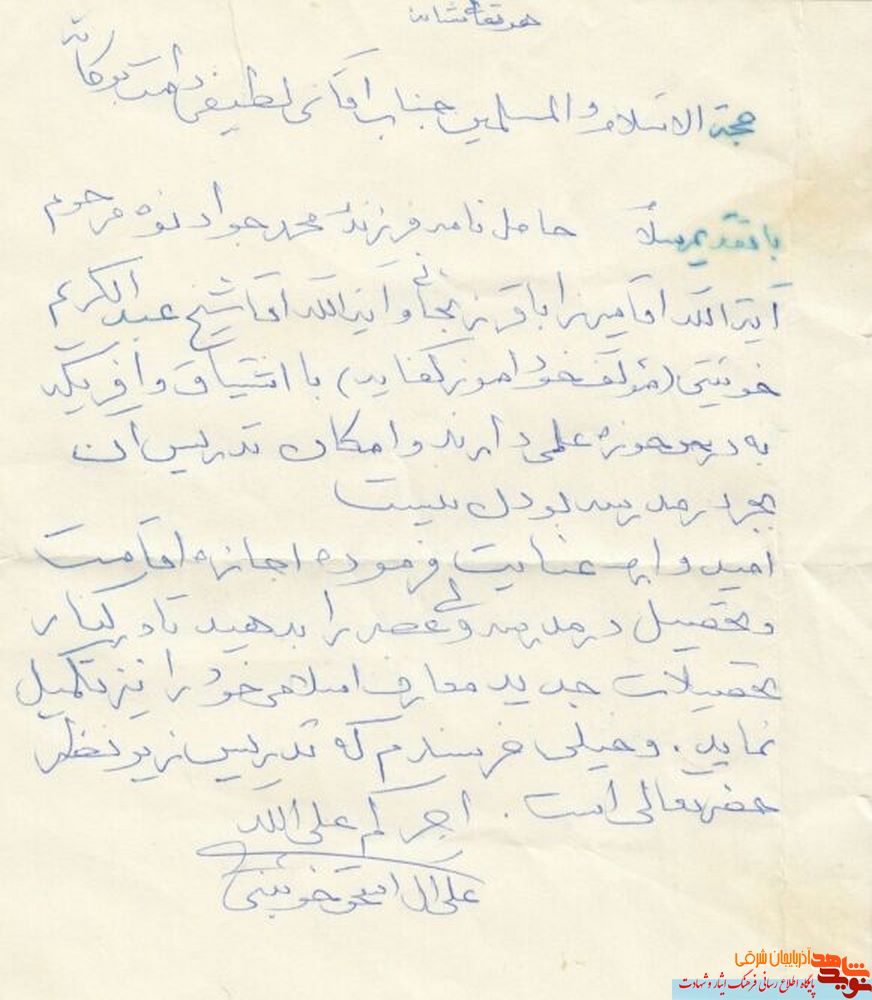 هو تعالی شأنه
حجة الاسلام والمسلمین جناب آقای لطیفی دامت برکاته
با تقدیم سلام حامل نامه فرزند محمد جواد نوه مرحوم
آیة الله آقا میرزا باقر زنجانی و آیة الله آقا شیخ عبدالکریم
خوئینی (مؤلف خودآموز کفایه) با اشتیاق وافر که
به دروس حوزه علمی دارند و امکان تدریس آن
جز در مدرسه نیست
امید وارم عنایت فرموده اجازه اقامت
و تحصیل در مدرسه ولی عصر را بدهید تا در کنار
تحصیلات جدید معارف اسلامی خود را نیز تکمیل
نماید. و خیلی خرسندم که تدریس زیر نظر
حضرتعالی است. اجرکم علی الله
علی آل اسحق خوئینی
نوید شاهد آذربایجان شرقی
پایگاه اطلاع رسانی فرهنگ ایثار و شهادت